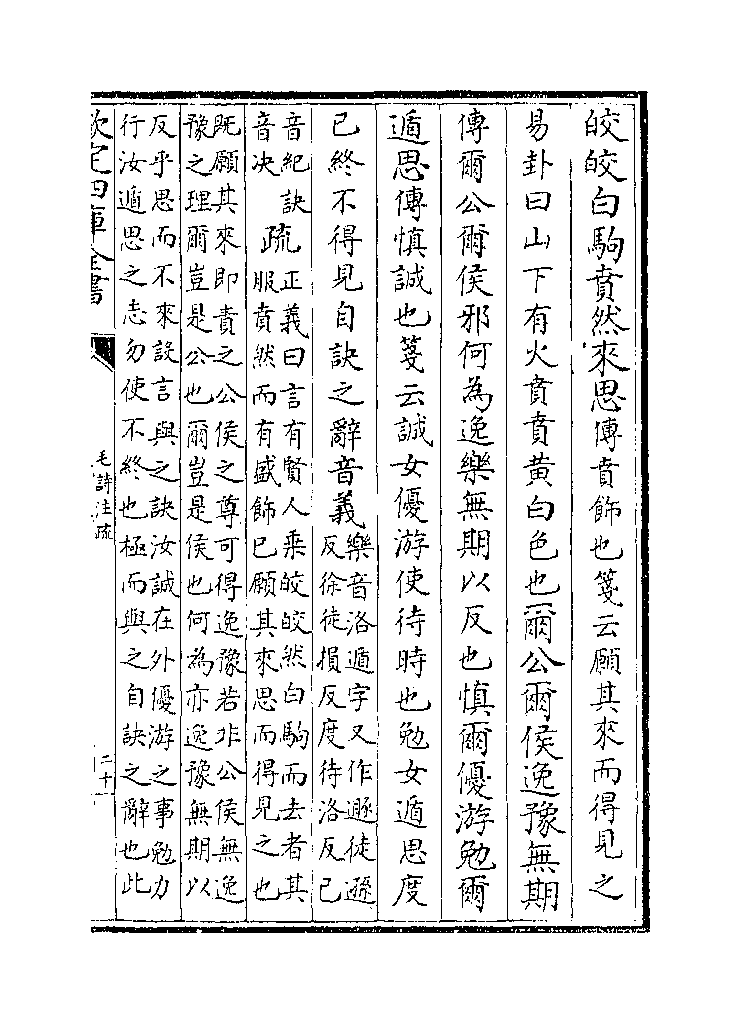 皎皎白駒賁然來思傳賁飾也箋云願其來而得見之
易卦曰山下有火賁賁黄白色也爾公爾侯逸豫無期
傳爾公爾侯邪何為逸樂無期以反也慎爾優游勉爾
遁思傳慎誠也箋云誠女優游使待時也勉女遁思度
已終不得見自訣之辭音義
樂音洛遁字又作遯徒遜
反徐徒損反度待洛反已
音紀訣
音决
疏
正義曰言有賢人乘皎皎然白駒而去者其
服賁然而有盛飾已願其來思而得見之也
既願其來即責之公侯之尊可得逸豫若非公侯無逸
豫之理爾豈是公也爾豈是侯也何為亦逸豫無期以
反乎思而不來設言與之訣汝誠在外優游之事勉力
行汝遁思之志勿使不終也極而與之自訣之辭也此
欽定四庫全書
毛詩注疏
二十